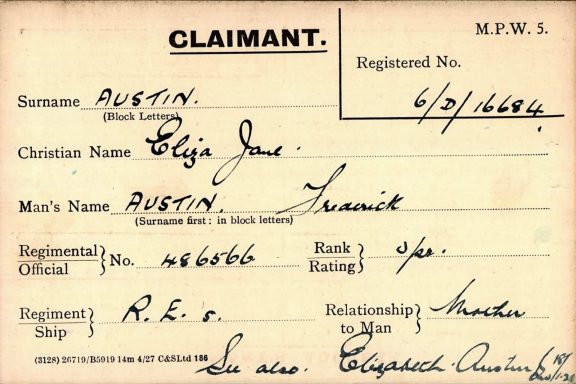 CLAIMANT.
M.P.W. 5.
Registered No.
6/D/16684
Surname AUSTIN.
(Block Letters)
Christian Name Eliza Jane.
Man's Name AUSTIN. Frederick
(Surname first: in block letters)
Regimental Official } No. 486566
Rank Rating } Spr.
Regiment Ship } R.E's.
Relationship to Man } Mother
(3128) 26719/B5919 14m 4/27 C&SLtd 186
See also. Elizabeth Austin